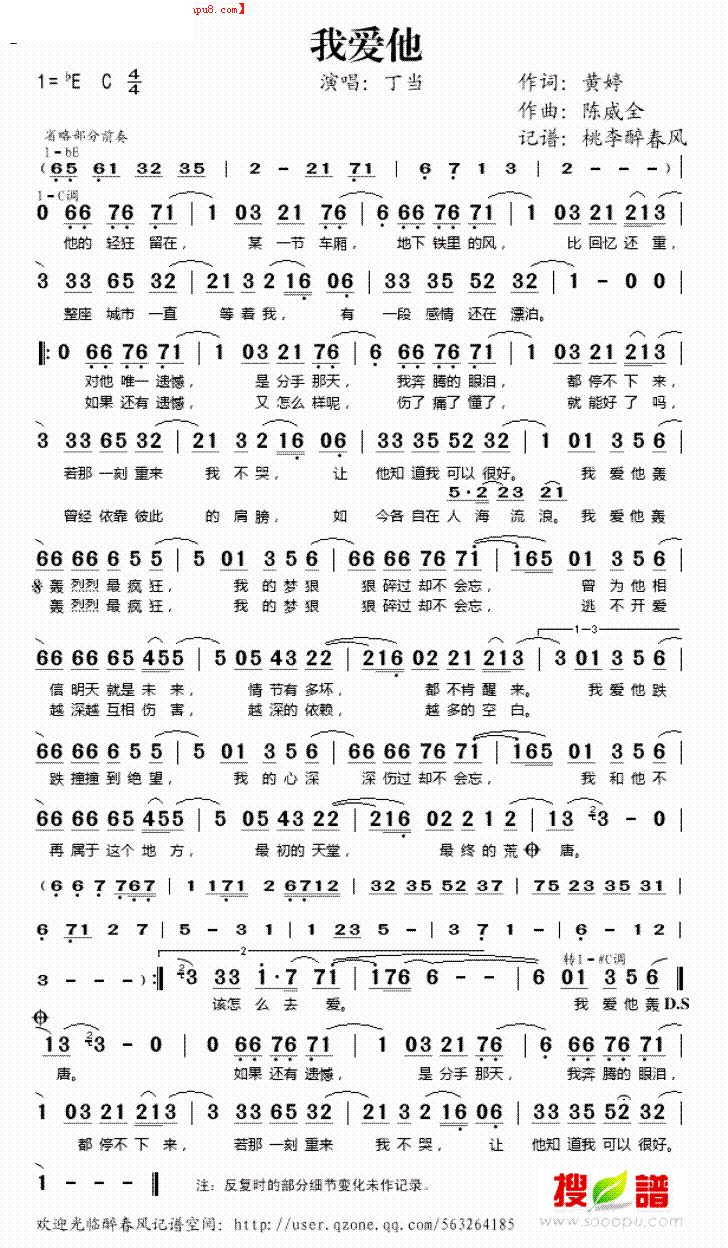 pu8.com】
我爱他
1=♭E C 4/4 演唱：丁当 作词：黄婷
作曲：陈威全
记谱：桃李醉春风
省略部分前奏
1-bE
(65 61 32 35 | 2 - 21 71 | 6 7 1 3 | 2 - - - ) |
1-C调
0 66 76 71 | 1 03 21 76 | 6 66 76 71 | 1 03 21 213 |
他的 轻狂 留在， 某 一节 车厢， 地下 铁里的风， 比 回忆 还 重，
3 33 65 32 | 21 3 2 16 06 | 33 35 52 32 | 1 - 0 0 |
整座 城市 一直 等着我， 有 一段 感情 还在 漂泊。
0 66 76 71 | 1 03 21 76 | 6 66 76 71 | 1 03 21 213 |
对他 唯一 遗憾， 是 分手 那天， 我奔 腾的 眼泪， 都 停不 下 来，
如果 还有 遗憾， 又 怎么 样呢， 伤了 痛了 懂了， 就 能好 了 吗，
3 33 65 32 | 21 3 2 16 06 | 33 35 52 32 | 1 01 3 5 6 |
若那 一刻 重来 我 不 哭， 让 他知 道我 可以 很好。 我 爱 他 轰
5·2 23 21
曾经 依靠 彼此 的 肩 膀， 如 今各 自在 人 海 流 浪。 我 爱 他 轰
66 66 6 5 5 | 5 01 3 5 6 | 66 66 76 71 | 165 01 3 5 6 |
轰 烈烈 最 疯 狂， 我 的 梦 狠 狠 碎过 却不 会忘， 曾 为 他 相
轰 烈烈 最 疯 狂， 我 的 梦 狠 狠 碎过 却不 会忘， 逃 不 开 爱
1-3
66 66 65 455 | 5 05 43 22 | 216 02 21 213 | 3 01 3 5 6 |
信 明天 就是 未 来， 情 节有 多坏， 都 不肯 醒 来。 我 爱 他 跌
越 深越 互相 伤 害， 越 深的 依赖， 越 多的 空 白。
66 66 6 5 5 | 5 01 3 5 6 | 66 66 76 71 | 165 01 3 5 6 |
跌 撞撞 到 绝 望， 我 的 心 深 深 伤过 却不 会忘， 我 和 他 不
66 66 65 455 | 5 05 43 22 | 216 02 2 1 2 | 13 3 - 0 |
再 属于 这个 地 方， 最 初的 天堂， 最 终 的 荒 唐。
(6 6 7 767 | 1 171 2 6712 | 32 35 52 37 | 75 23 35 31 |
6 71 2 7 | 5 - 3 1 | 1 23 5 - | 3 7 1 - | 6 - 1 2 |
2 转1-#C调
3 - - - ) :| 3 33 1·7 71 | 176 6 - - | 6 01 3 5 6 ‖
该怎 么 去 爱。 我 爱 他 轰 D.S
13 3 - 0 | 0 66 76 71 | 1 03 21 76 | 6 66 76 71 |
唐。 如果 还有 遗憾， 是 分手 那天， 我奔 腾的 眼泪，
1 03 21 213 | 3 33 65 32 | 21 3 2 16 06 | 33 35 52 32 |
都 停不 下 来， 若那 一刻 重来 我 不 哭， 让 他知 道我 可以 很好。
1 - - - ‖ 注：反复时的部分细节变化未作记录。
搜谱
欢迎光临醉春风记谱空间：http://user.qzone.qq.com/563264185
www.sooopu.com